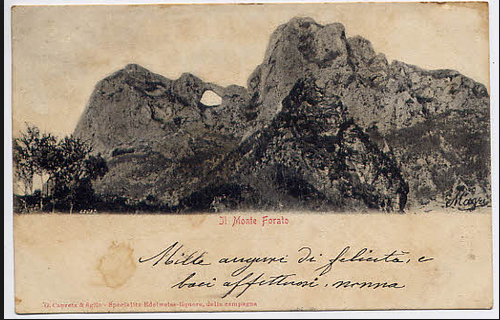 Il Monte Forato
Mille auguri di felicità, e
baci affettuosi, nonna
G. Capretz & figlio - Specialità Edelweiss-liquore, della campagna